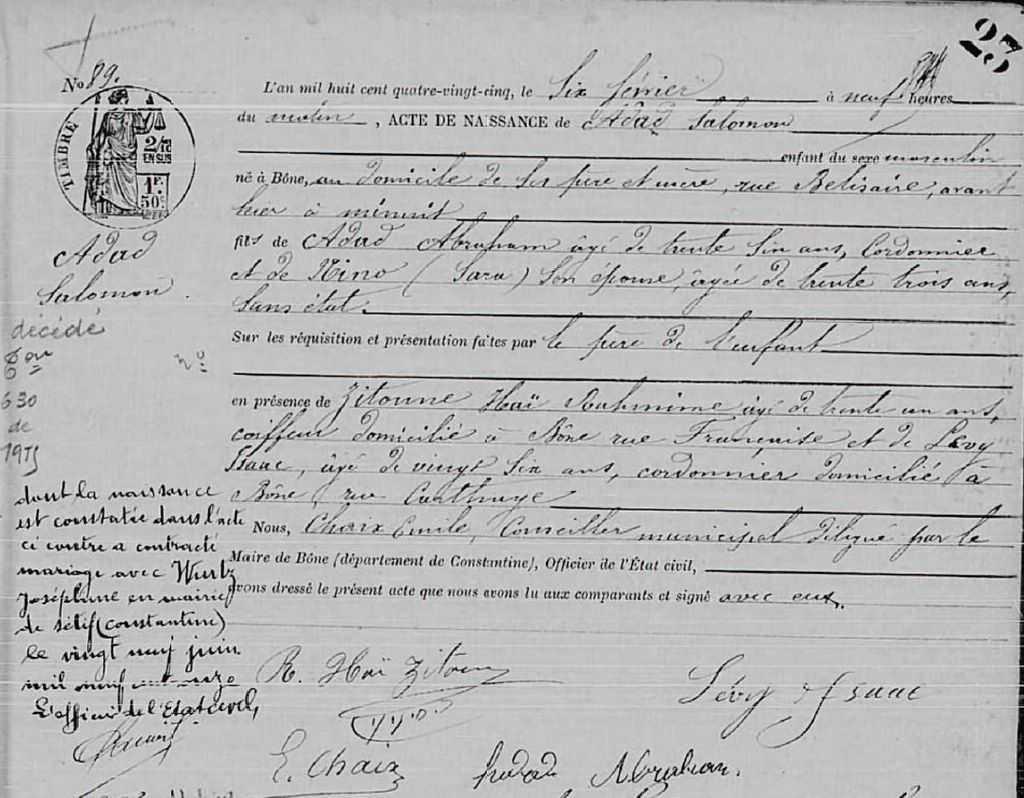 23
No 89.
L'an mil huit cent quatre-vingt-cinq, le Six février à neuf heures
du matin, ACTE DE NAISSANCE de Adad Salomon
enfant du sexe masculin
né à Bône, au domicile de ses père et mère, rue Belisaire, avant
hier à minuit
fils de Adad Abraham âgé de trente Six ans, Cordonnier
et de Nino (Sara) Son épouse, âgée de trente trois ans,
Sans état.
Sur les réquisition et présentation faites par le père de l'enfant
en présence de Zitoune Haï Rahmime âgé de trente un ans,
coiffeur domicilié à Bône rue Française et de Levy
Isaac, âgé de vingt Six ans, cordonnier domicilié à
Bône, rue Carthage
Nous, Chaix Emile, Conseiller municipal délégué par le
Maire de Bône (département de Constantine), Officier de l'État civil,
avons dressé le présent acte que nous avons lu aux comparants et signé avec eux.
R. Haï Zitoun
Lévy Isaac
E. Chaix
Abraham.
TIMBRE
2/10
EN SUS
1F.
50c
Adad
Salomon
décédé
630
de
dont la naissance
est constatée dans l'acte
ci contre a contracté
mariage avec Wurtz
Joséphine en mairie
de Sétif (Constantine)
le vingt neuf juin
mil neuf cent onze
L'officier de l'Etat civil,